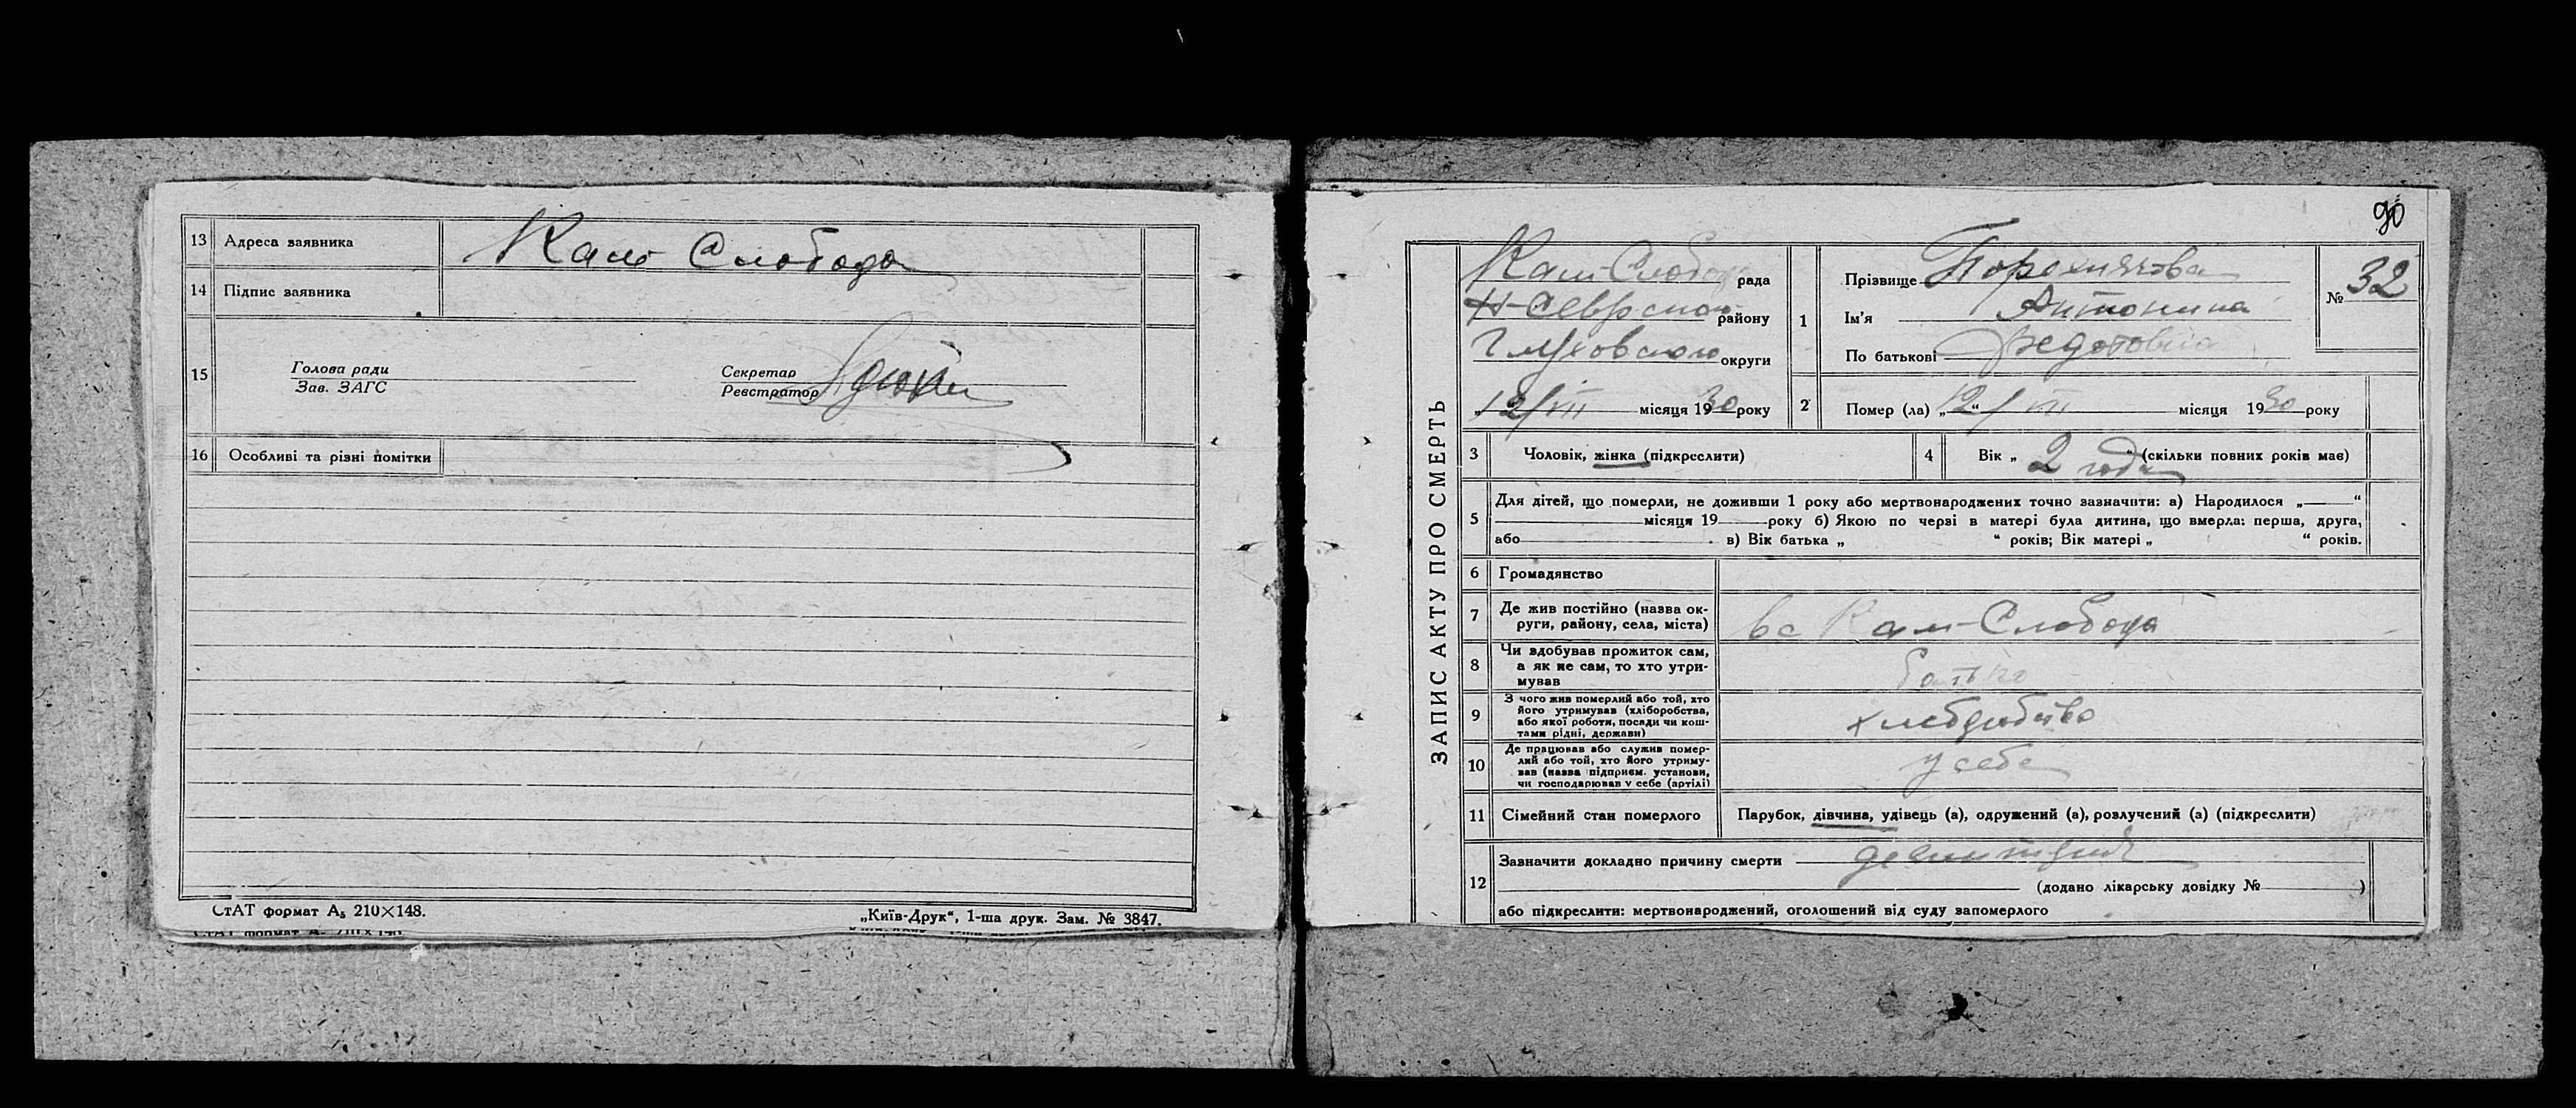 13 Адреса заявника Кам Слобода
14 Підпис заявника
15 Голова ради
Зав. ЗАГС
Секретар
Реєстратор
16 Особливі та різні помітки
СтАТ формат А₅ 210×148.
„Київ-Друк“, 1-ша друк. Зам. № 3847.
90
ЗАПИС АКТУ ПРО СМЕРТЬ
Кам-Слобод рада
Н-Север району
Глуховского округи
„12/VII місяця 1930 року
1 Прізвище
Ім'я Антонина
По батькові Федотовна
№ 32
2 Помер (ла) „12/“ VII місяця 1930 року
3 Чоловік, жінка (підкреслити)
4 Вік „ 2 года “ (скільки повних років має)
5 Для дітей, що померли, не доживши 1 року або мертвонароджених точно зазначити: а) Народилося „ “
місяця 19 року б) Якою по черзі в матері була дитина, що вмерла: перша, друга,
або . в) Вік батька „ “ років; Вік матері „ “ років.
6 Громадянство
7 Де жив постійно (назва ок-
руги, району, села, міста) вс Кам-Слобода
8 Чи здобував прожиток сам,
а як не сам, то хто утри-
мував батько
9 З чого жив померлий або той, хто
його утримував (хліборобства,
або якої роботи, посади чи кош-
тами рідні, держави)
10 Де працював або служив помер-
лий або той, хто його утриму-
вав (назва підприєм. установи,
чи господарював у себе (артілі) у себе
11 Сімейний стан померлого Парубок, дівчина, удівець (а), одружений (а), розлучений (а) (підкреслити)
12 Зазначити докладно причину смерти
(додано лікарську довідку № )
або підкреслити: мертвонароджений, оголошений від суду запомерлого